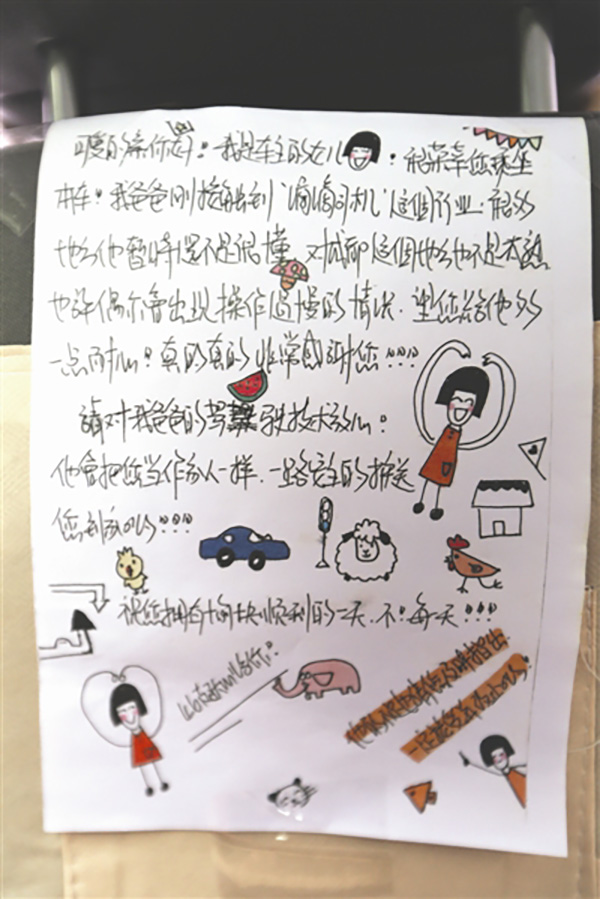 可爱的亲你好！我是车主的女儿！很荣幸您乘坐
本车！我爸爸刚接触到“滴滴司机”这個行业.很多
地方他暂时还不是很懂 对成都這個地方也不是太熟
也许偶尔會出现操作過慢的情况.望您给他多
一点耐心！真的真的非常感謝您!!!
請对我爸爸的驾驶技术放心！
他會把您当作家人一样.一路安全的護送
您到家的!!!
祝您拥有愉快顺利的一天.不！每一天!!!